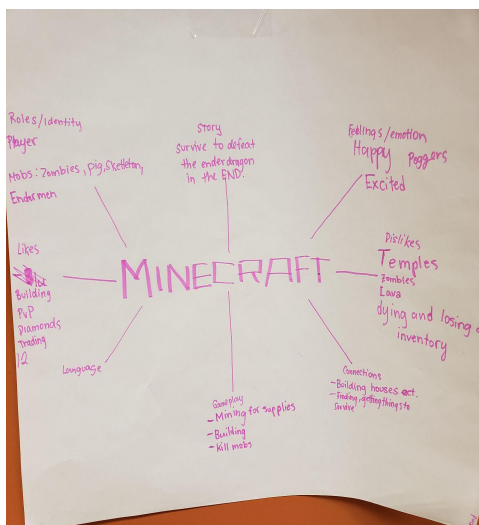 Roles/Identity
Player
Mobs: Zombies, pig, Skelleton,
Endarmen
Story
Survive to defeat
the enderdragon
in the END.
Feelings/emotion
Happy Poggers
Excited
Likes
Building
PvP
Diamonds
Trading
12
MINECRAFT
Dislikes
Temples
Zombies
Lava
dying and losing
inventory
Language
Gameplay
- Mining for supplies
- Building
- Kill mobs
Connections
- Building houses ect.
- Trading, getting things to
survive